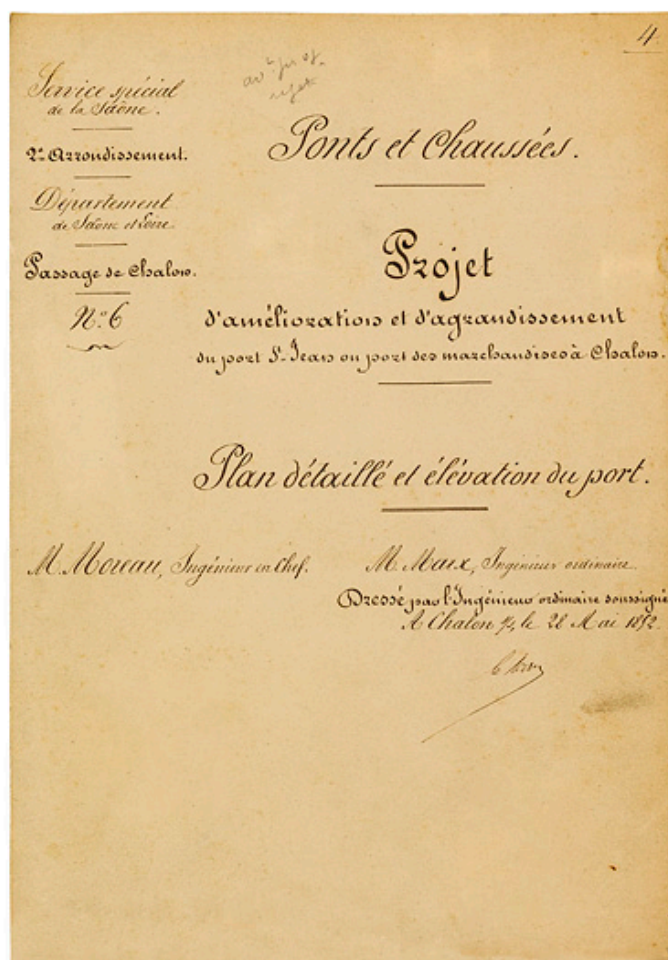 4
Service spécial
de la Saône.
2e Arrondissement.
Département
de Saône et Loire.
Passage de Chalon.
N.o 6
Ponts et Chaussées.
Projet
d'amélioration et d'agrandissement
du port St Jean ou port des marchandises à Chalon.
Plan détaillé et élévation du port.
M. Moreau, Ingénieur en Chef.
M. Marx, Ingénieur ordinaire.
Dressé par l'Ingénieur ordinaire soussigné
A Chalon s/s, le 28 Mai 1852.